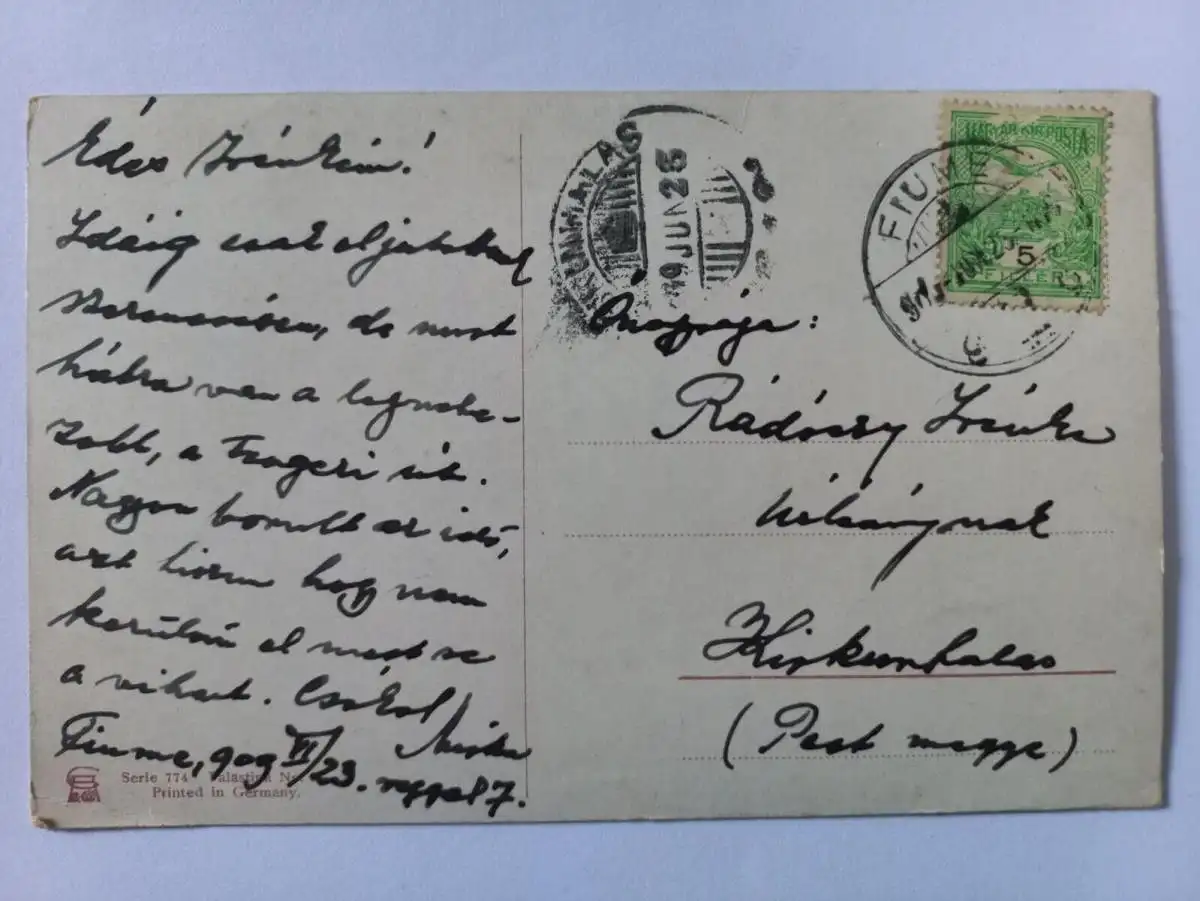 Édes Irénkém!
Idáig csak eljutottunk
szerencsésen, de most
hátra van a legnehe-
zebb, a tengeri út.
Nagyon borult az idő,
azt hiszem hogy nem
kerülöm el most se
a vihart. Csókol Mirko
Fiume, 909 VI/23. reggel 7.
Serie 774 Palästina
Printed in Germany.
KISKUNHALAS
909 JUN 25
MAGYAR KIR. POSTA
5
FILLÉR
FIUME
Őnagysága:
Rádóczy Irénke
úrleánynak
Kiskunhalas
(Pest megye)